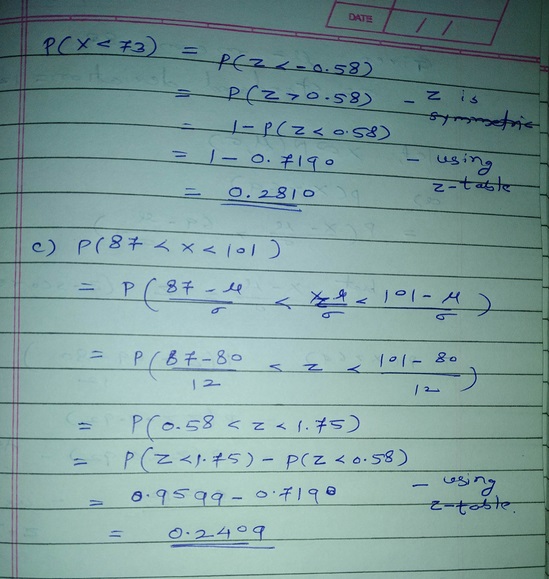 DATE / /
P(X<73) = P(Z<-0.58)
= P(Z>0.58) - Z is symmetric
= 1-P(Z<0.58)
= 1-0.7190 - using z-table
= 0.2810
c) P(87<X<101)
= P(87-μ/σ < X-μ/σ < 101-μ/σ)
= P(87-80/12 < Z < 101-80/12)
= P(0.58<Z<1.75)
= P(Z<1.75)-P(Z<0.58)
= 0.9599-0.7190 - using z-table.
= 0.2409